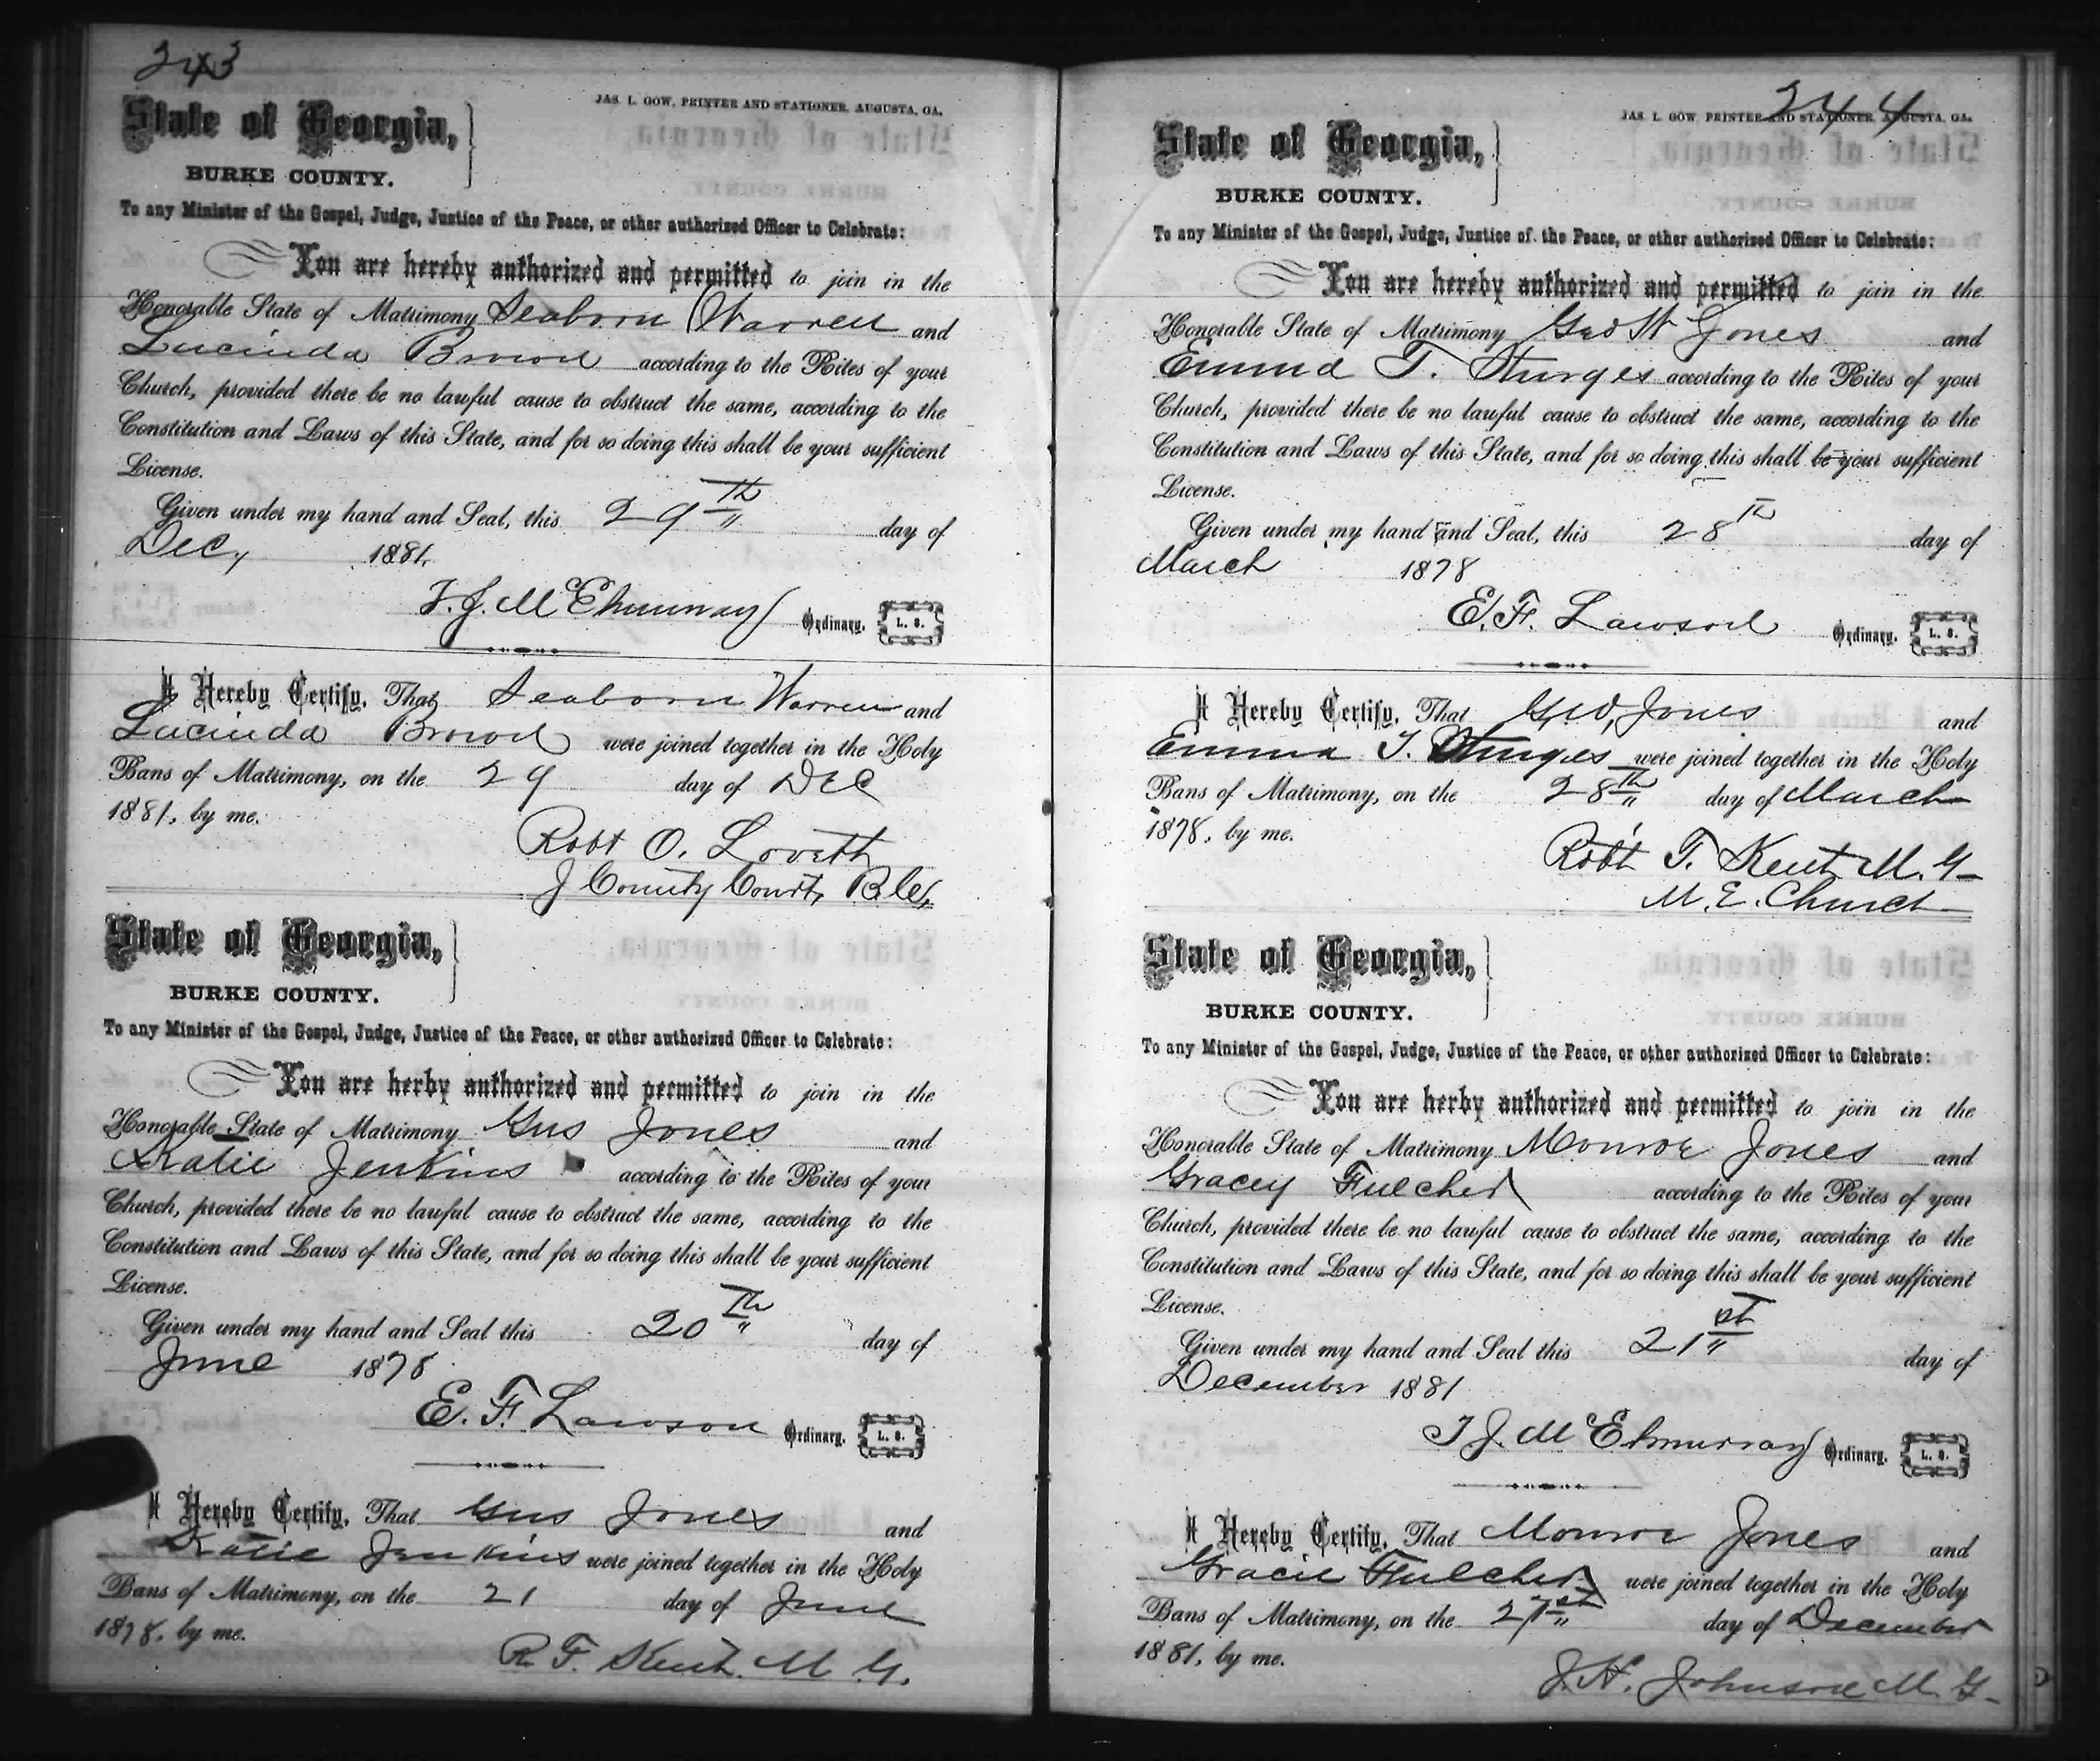 243
JAS. L. GOW, PRINTER AND STATIONER, AUGUSTA, GA.
State of Georgia,
BURKE COUNTY.
To any Minister of the Gospel, Judge, Justice of the Peace, or other authorized Officer to Celebrate:
You are hereby authorized and permitted to join in the
Honorable State of Matrimony Seaborn Warren and
Lucinda Brown according to the Rites of your
Church, provided there be no lawful cause to obstruct the same, according to the
Constitution and Laws of this State, and for so doing this shall be your sufficient
License.
Given under my hand and Seal, this 29th day of
Dec, 1881.
T. J. McElmurray Ordinary. L. S.
I Hereby Certify, That Seaborn Warren and
Lucinda Brown were joined together in the Holy
Bans of Matrimony, on the 29 day of Dec
1881, by me.
Robt O. Lovett
J County Court, B.C.
State of Georgia,
BURKE COUNTY.
To any Minister of the Gospel, Judge, Justice of the Peace, or other authorized Officer to Celebrate:
You are herby authorized and permitted to join in the
Honorable State of Matrimony Gus Jones and
Katie Jenkins according to the Rites of your
Church, provided there be no lawful cause to obstruct the same, according to the
Constitution and Laws of this State, and for so doing this shall be your sufficient
License.
Given under my hand and Seal this 20th day of
June 1878
E. F. Lawson Ordinary. L. S.
I Hereby Certify, That Gus Jones and
Katie Jenkins were joined together in the Holy
Bans of Matrimony, on the 21 day of June
1878, by me.
R. F. Kent. M. G.
244
JAS. L. GOW, PRINTER AND STATIONER, AUGUSTA, GA.
State of Georgia,
BURKE COUNTY.
To any Minister of the Gospel, Judge, Justice of the Peace, or other authorized Officer to Celebrate:
You are hereby authorized and permitted to join in the
Honorable State of Matrimony Geo W Jones and
Emma T. Sturges according to the Rites of your
Church, provided there be no lawful cause to obstruct the same, according to the
Constitution and Laws of this State, and for so doing this shall be your sufficient
License.
Given under my hand and Seal, this 28th day of
March 1878
E. F. Lawson Ordinary. L. S.
I Hereby Certify, That Geo, Jones and
Emma T. Sturges were joined together in the Holy
Bans of Matrimony, on the 28th day of March
1878, by me.
Robt T. Kent M. G
M. E. Church
State of Georgia,
BURKE COUNTY.
To any Minister of the Gospel, Judge, Justice of the Peace, or other authorized Officer to Celebrate:
You are herby authorized and permitted to join in the
Honorable State of Matrimony Monroe Jones and
Gracey Fulcher according to the Rites of your
Church, provided there be no lawful cause to obstruct the same, according to the
Constitution and Laws of this State, and for so doing this shall be your sufficient
License.
Given under my hand and Seal this 21st day of
December 1881
T J. McElmurray Ordinary. L. S.
I Hereby Certify, That Monroe Jones and
Gracie Fulcher were joined together in the Holy
Bans of Matrimony, on the 21st day of December
1881, by me.
J. H. Johnson M. G